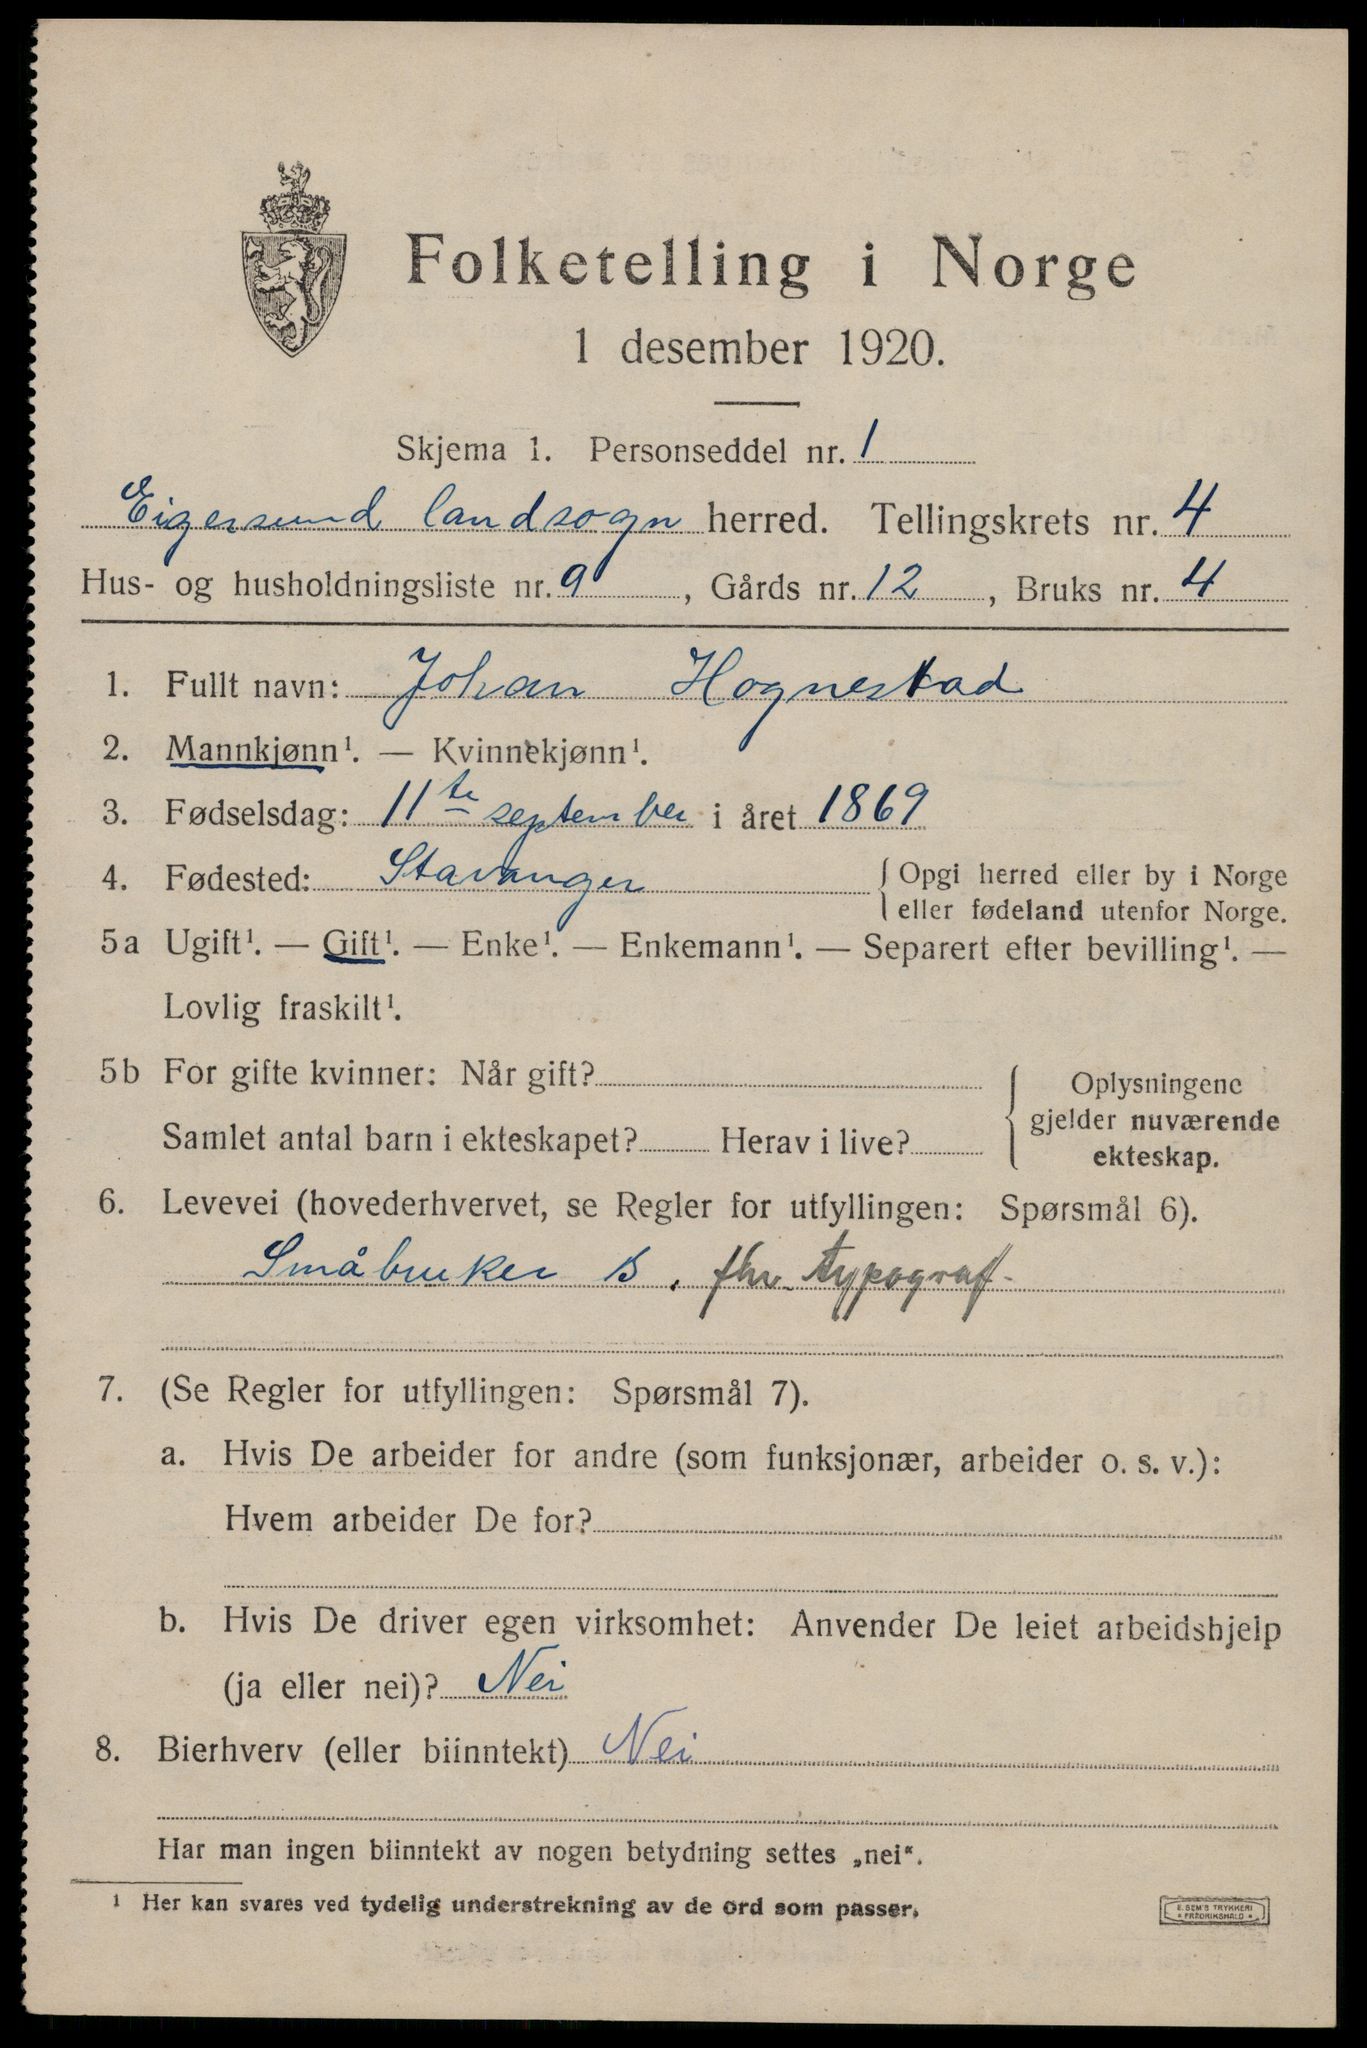 Folketelling i Norge
1 desember 1920.
Skjema 1. Personseddel nr. 1
Eigersund landsogn herred. Tellingskrets nr. 4
Hus- og husholdningsliste nr. 9, Gårds nr. 12, Bruks nr. 4
1. Fullt navn: Johan Hognestad
2. Mannkjønn¹. — Kvinnekjønn¹.
3. Fødselsdag: 11te september i året 1869
4. Fødested: Stavanger { Opgi herred eller by i Norge
eller fødeland utenfor Norge.
5a Ugift¹. — Gift¹. — Enke¹. — Enkemann¹. — Separert efter bevilling¹. —
Lovlig fraskilt¹.
5b For gifte kvinner: Når gift?
Samlet antal barn i ekteskapet? Herav i live?
{ Oplysningene
gjelder nuværende
ekteskap.
6. Levevei (hovederhvervet, se Regler for utfyllingen: Spørsmål 6).
Småbruker B. fhv. typograf
7. (Se Regler for utfyllingen: Spørsmål 7).
a. Hvis De arbeider for andre (som funksjonær, arbeider o. s. v.):
Hvem arbeider De for?
b. Hvis De driver egen virksomhet: Anvender De leiet arbeidshjelp
(ja eller nei)? Nei
8. Bierhverv (eller biinntekt) Nei
Har man ingen biinntekt av nogen betydning settes „nei“.
¹ Her kan svares ved tydelig understrekning av de ord som passer.
E. SEM'S TRYKKERI
• FREDRIKSHALD •